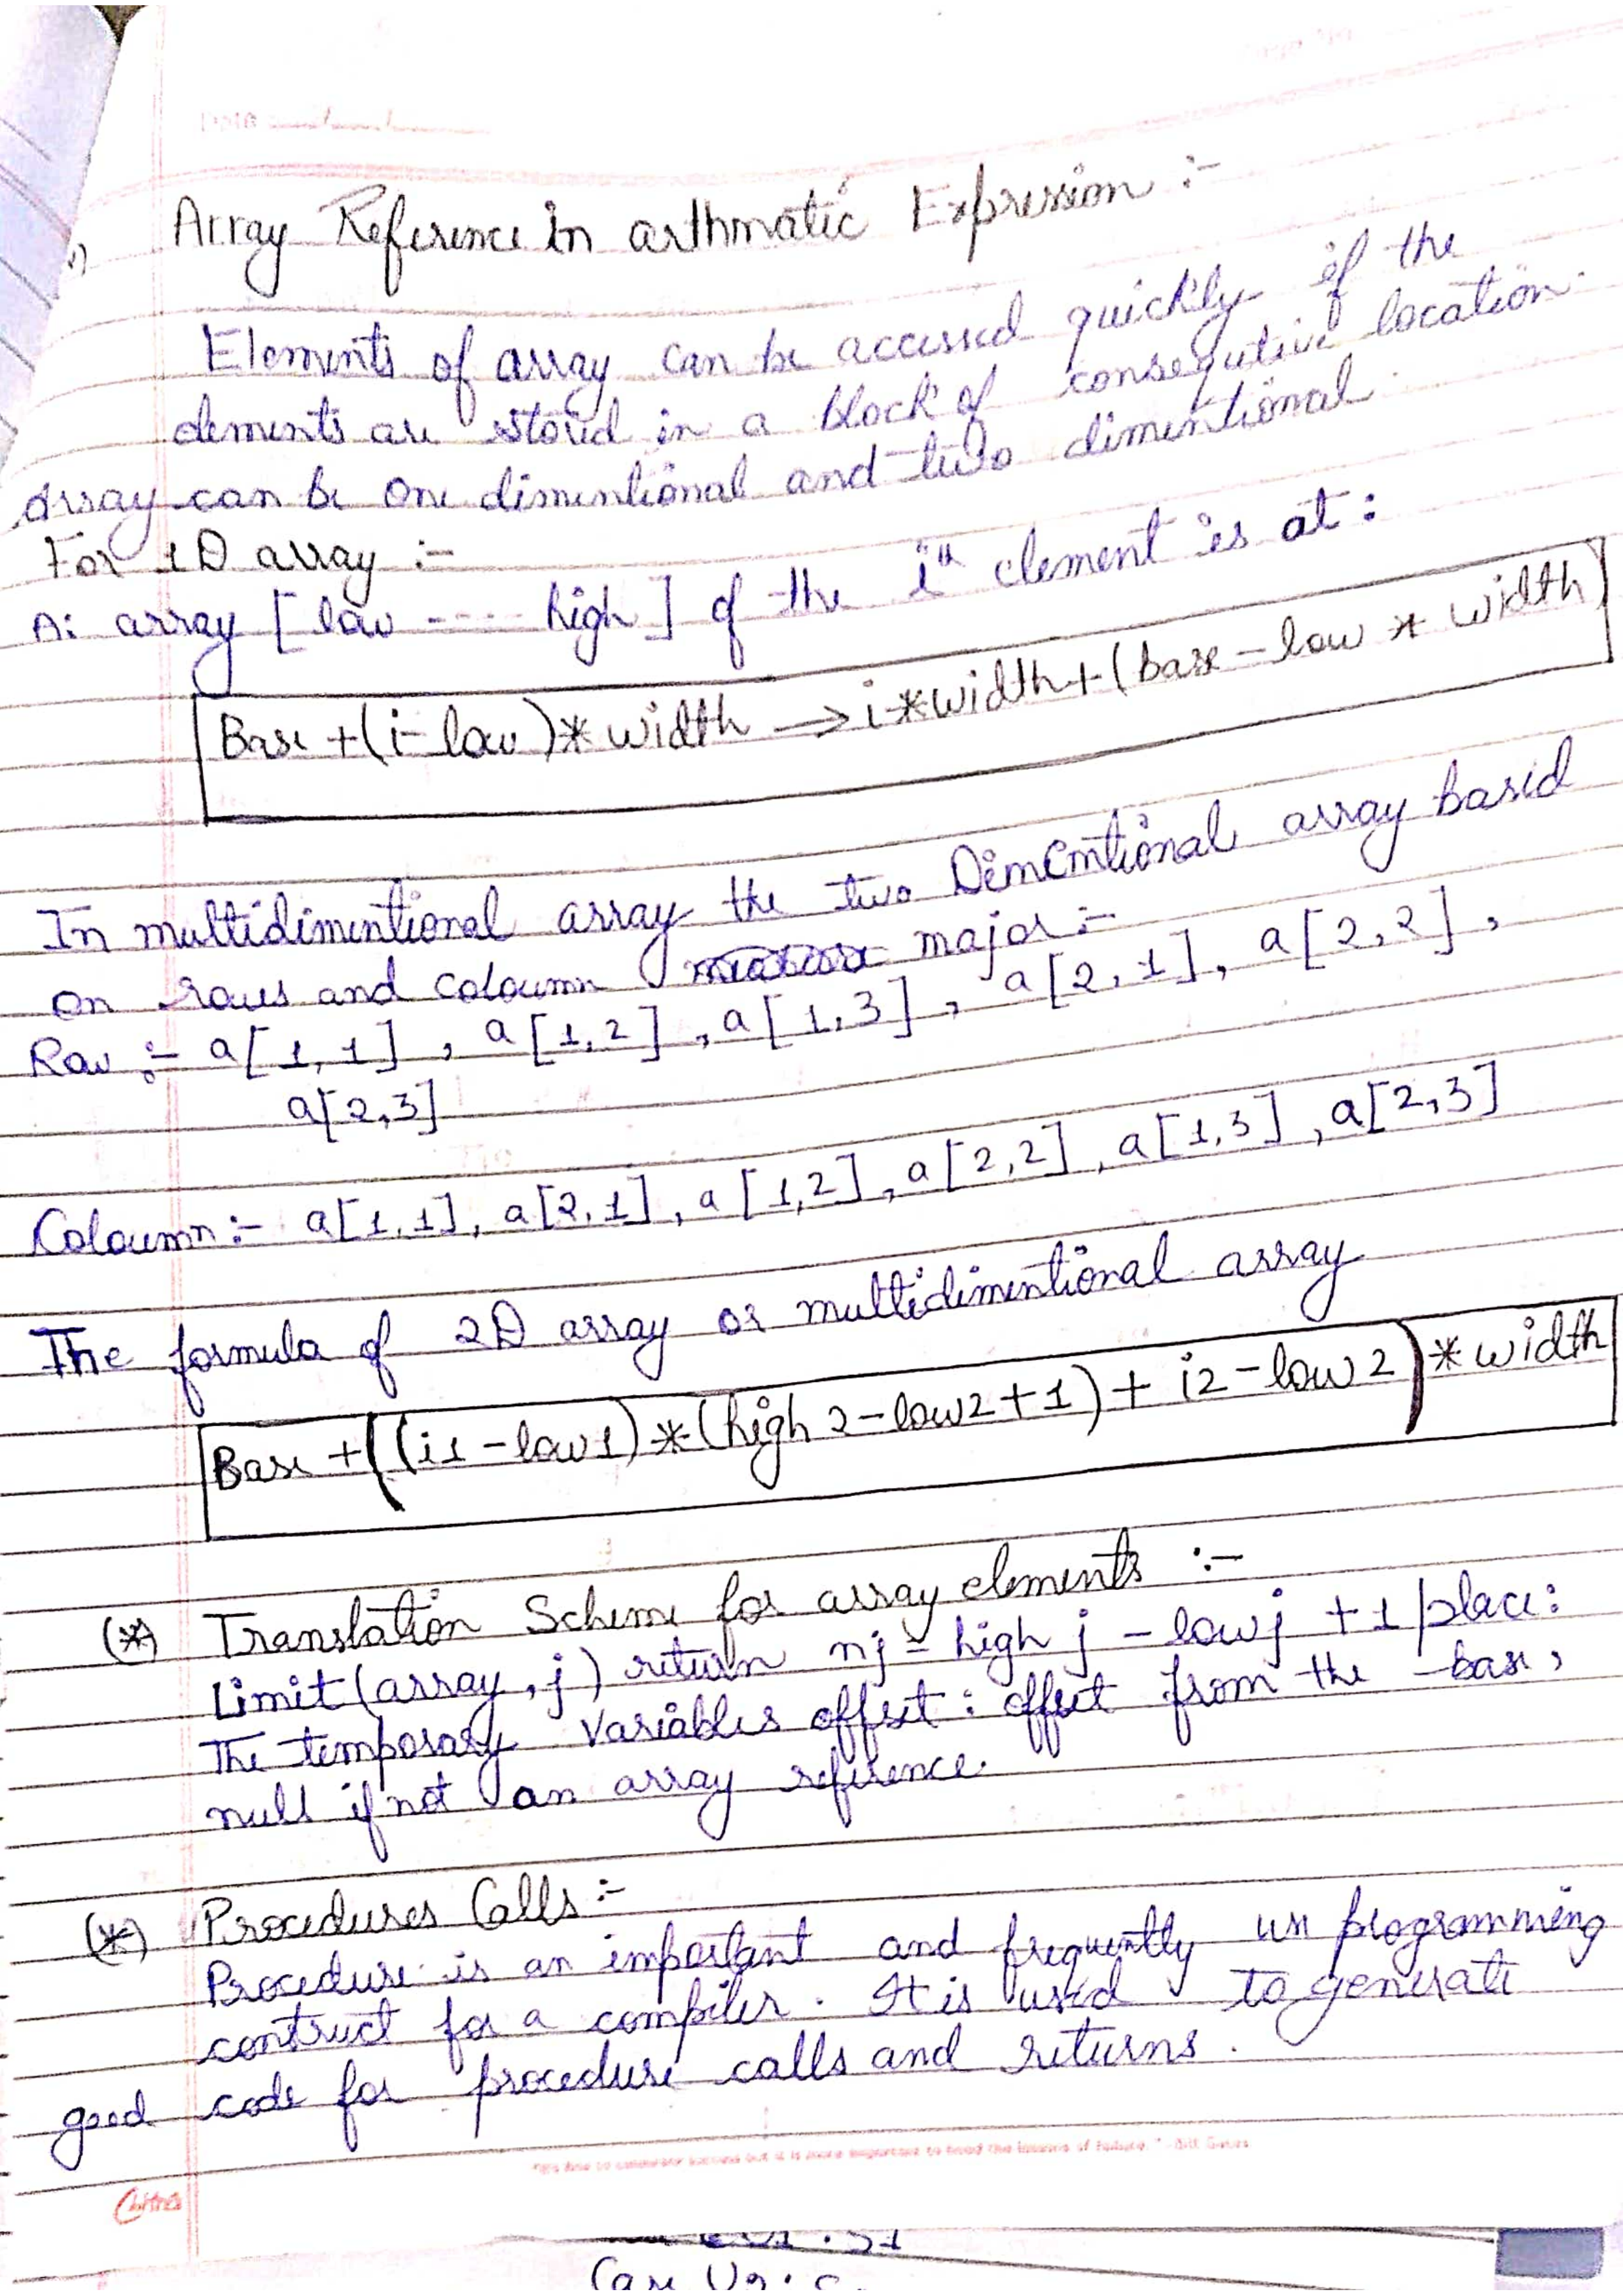 Date
v) Array Reference in arthmatic Expression :-
Elements of array can be accessed quickly if the
elements are stored in a block of consequtive location.
Array can be one dimentional and two dimentional.
For 1D array :-
A: array [ low ---- high ] of the ith element is at :
Base + (i - low) * width → i * width + (base - low * width)
In multidimentional array the two Dimentional array based
on rows and coloumn major :-
Row :- a[1,1] , a[1,2] , a[1,3] , a[2,1], a[2,2] ,
a[2,3]
Coloumn :- a[1,1], a[2,1], a[1,2], a[2,2], a[1,3], a[2,3]
The formula of 2D array or multidimentional array
Base + ((i1 - low1) * (high2 - low2 + 1) + i2 - low2) * width
(*) Translation Scheme for array elements :-
Limit (array, j) return nj = high j - low j + 1 place :
The temporary variables offset : offset from the base,
null if not an array reference.
(*) Procedures Calls :-
Procedure is an important and frequently use programming
contruct for a compiler. It is used to generate
good code for procedure calls and returns.
Chitra